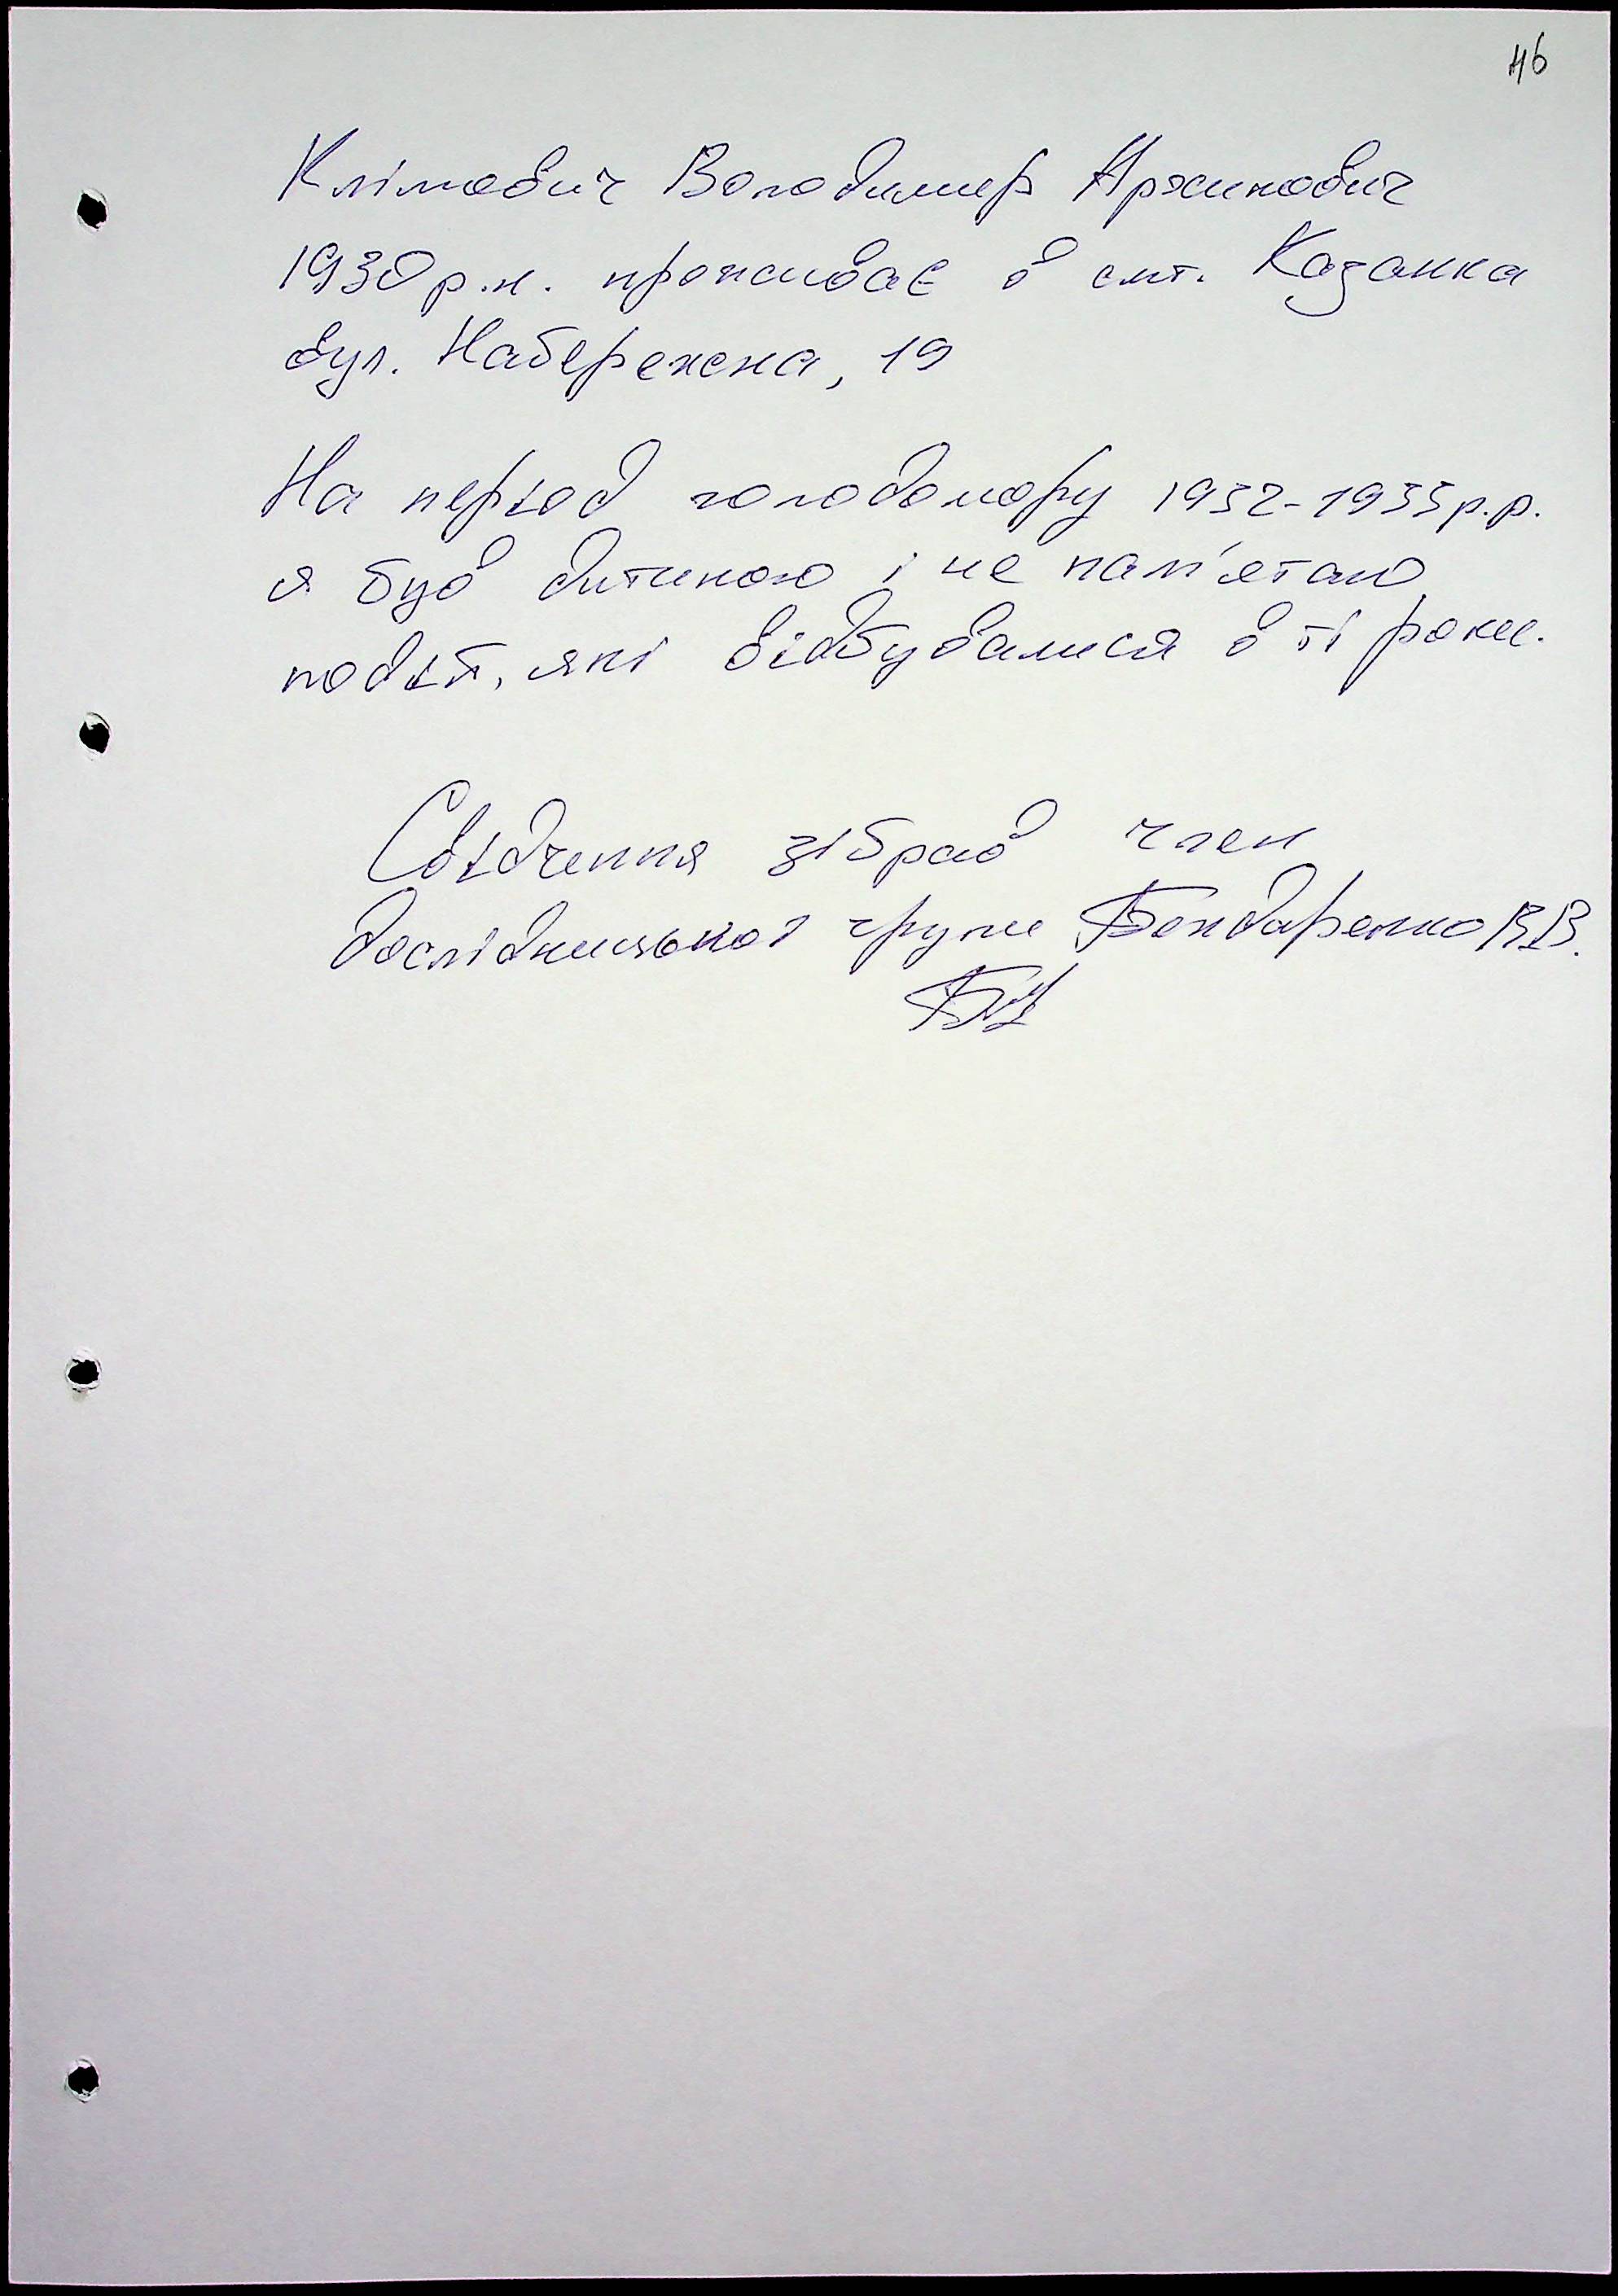 46
Клімович Володимир Архипович
1930 р.н. проживає в смт. Казанка
вул. Набережна, 19
На період голодомору 1932-1933 р.р.
я був дитиною і не пам'ятаю
подій, які відбувалися в ті роки.
Свідчення зібрав член
дослідницької групи Бондаренко В.В.